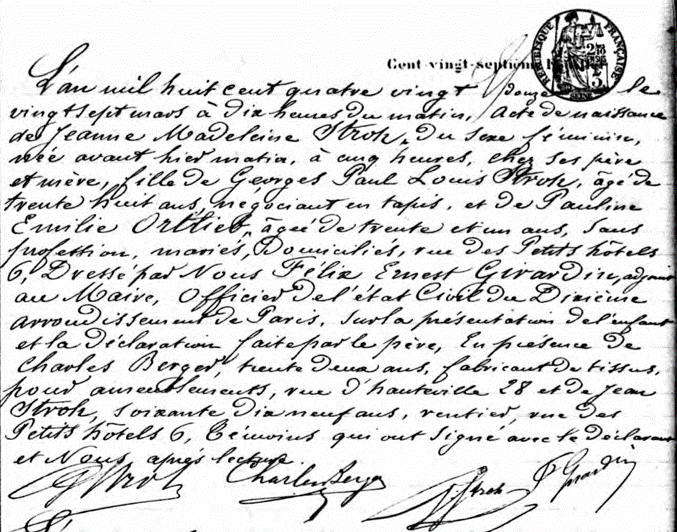 Cent-vingt-septième
RÉPUBLIQUE FRANÇAISE
L'an mil huit cent quatre vingt douze le
vingt sept mars à dix heures du matin, Acte de naissance
de Jeanne Madeleine Stroh, du sexe féminin,
née avant hier matin, à cinq heures, chez ses père
et mère, fille de Georges Paul Louis Stroh, âgé de
trente huit ans, négociant en tapis, et de Pauline
Emilie Ortlieb, âgée de trente et un ans, sans
profession, mariés, Domiciliés, rue des Petits hôtels
6, Dressé par Nous Félix Ernest Girardin, adjoint
au Maire, Officier de l'état Civil du Dixième
arrondissement de Paris, sur la présentation de l'enfant
et la déclaration faite par le père, En présence de
Charles Berger, trente deux ans, fabricant de tissus
pour ameublements, rue d'hauteville 28 et de Jean
Stroh, soixante dix neuf ans, rentier, rue des
Petits hôtels 6, témoins qui ont signé avec le déclarant
et Nous, après lecture.
Stroh Charles Berger Stroh Girardin